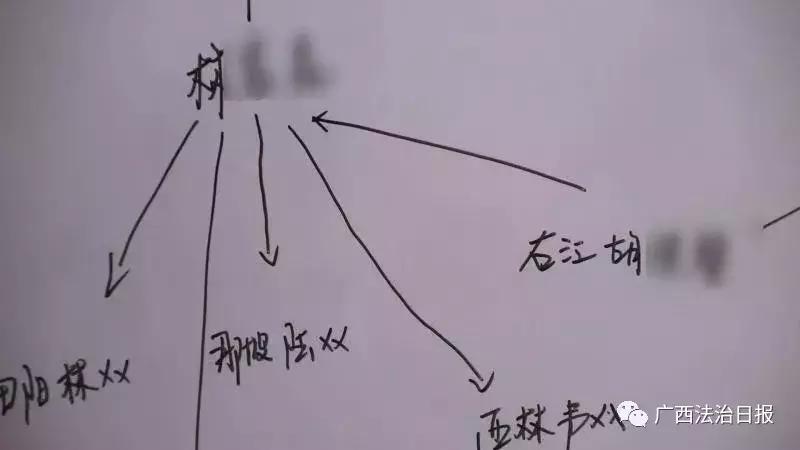 右江胡
那坡陈xx
田阳林xx
西林韦xx
广西法治日报